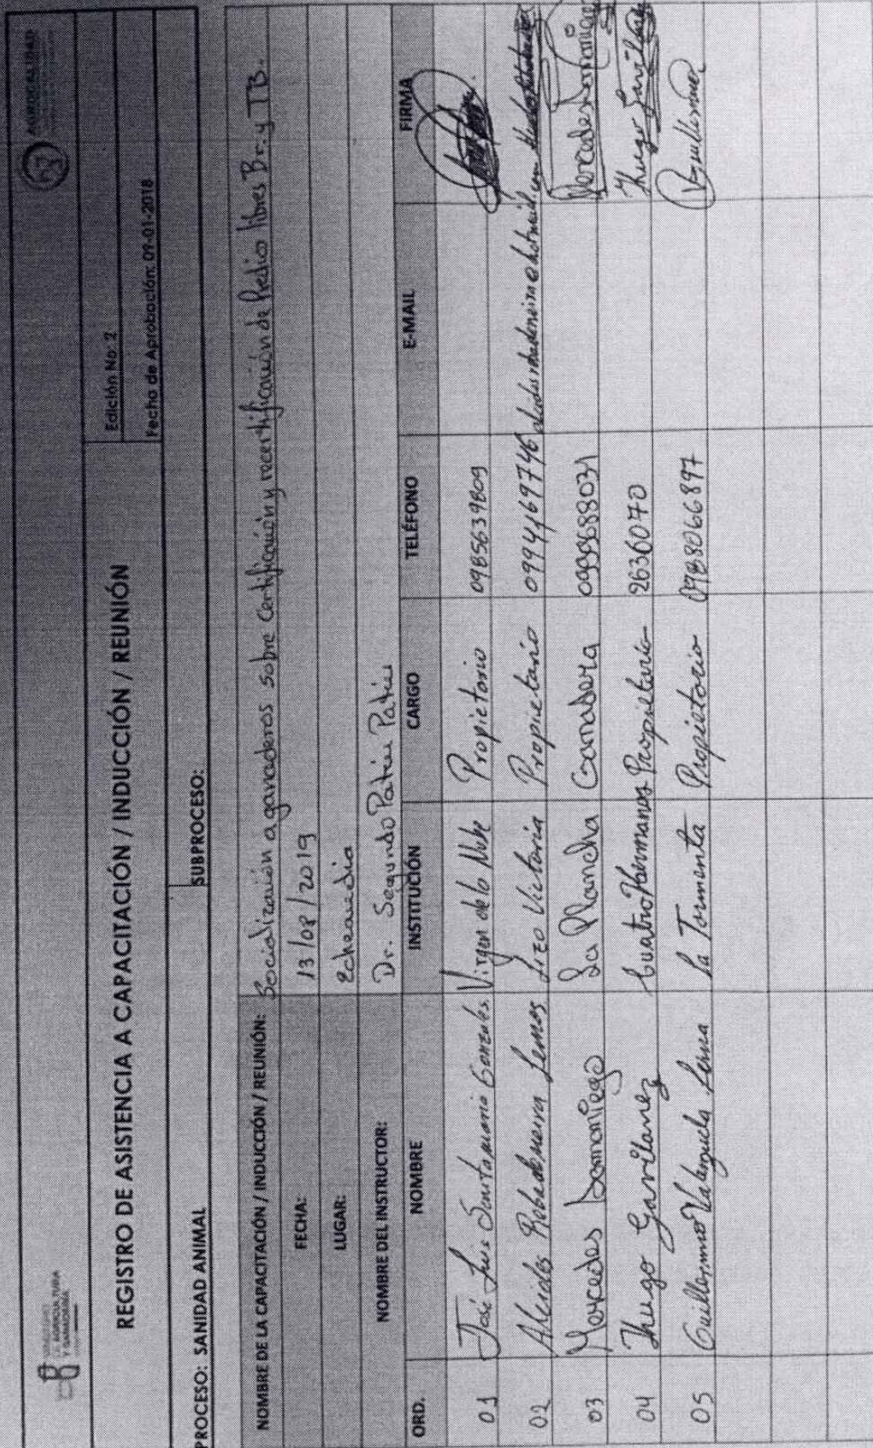 MINISTERIO DE AGRICULTURA Y GANADERÍA
AGROCALIDAD
REGISTRO DE ASISTENCIA A CAPACITACIÓN / INDUCCIÓN / REUNIÓN
Edición No: 2
Fecha de Aprobación: 09-01-2018
PROCESO: SANIDAD ANIMAL SUBPROCESO:
NOMBRE DE LA CAPACITACIÓN / INDUCCIÓN / REUNIÓN: Socialización a ganaderos sobre Certificación y recertificación de Predio libres Br. y TB.
FECHA: 13/08/2019
LUGAR: Echeandia
NOMBRE DEL INSTRUCTOR: Dr. Segundo Patiu Patiu
ORD. NOMBRE INSTITUCIÓN CARGO TELÉFONO E-MAIL FIRMA
01 José Luis Gonzales Virgen de la Nube Propietario 0985639809
02 Alcides Lemos Victoria Propietario 0994169746
03 Mercedes Samaniego La Plancha Ganadera 0999688031 Mercedes Samaniego
04 Hugo Gavilanez Cuatro Hermanos Propietario 2636070 Hugo Gavilanez
05 Guillermo Valenzuela La Tormenta Propietario 0988066897 Guillermo